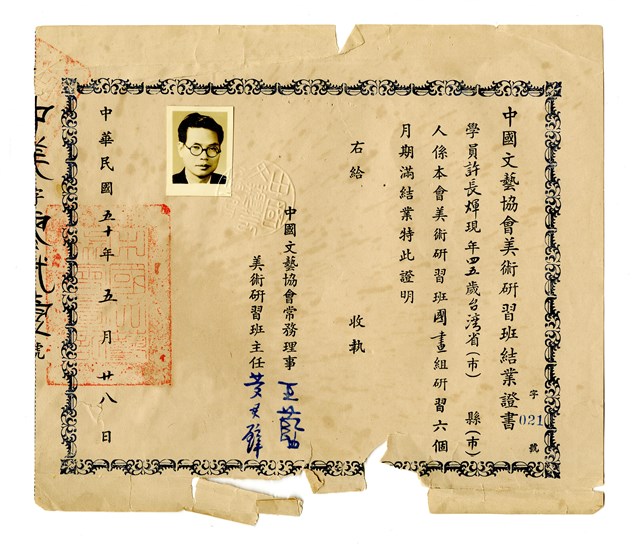 中國文藝協會美術研習班結業證書
字 021 號
學員許長煇現年四五歲台灣省(市) 縣(市)
人係本會美術研習班國畫組研習六個
月期滿結業特此證明
右給 收執
中國文藝協會常務理事 王藍
美術研習班主任 黃君璧
中華民國五十年五月廿八日